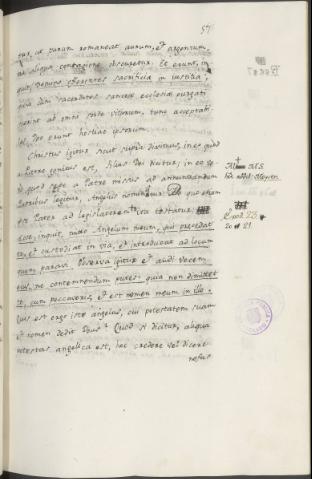 57
gur, ac purum remaneat aurum, et argentum,
ne aliqua contagione obscuretur. Et erunt, in-
quit, Domino offerentes sacrificia in iustitia;
cum sacerdotes sanctae ecclesiae purgati
fuerint ab omni sorde vitiorum, tunc acceptabi-
les Deo erunt hostiae ipsorum.
Christus igitur sicut supra diximus, in eo quod
a Patre genitus est, Filius Dei dicitur, in eo ve-
ro quod a Patre missus ad annuntiandum
Patribus legitur, Angelus nominatur. De quo etiam
Deus Pater ad legislatorem ita testatur.
Ecce, inquit, mitto Angelum meum, qui praecedat
te, et custodiat in via, et introducat ad locum
quem paravi. Observa igitur et audi vocem
eius, ne contemnendum putes: quia non dimittet
te, cum peccaveris, et est nomen meum in illo.
Quis est ergo iste angelus, cui potestatem suam
et nomen dedit Deus? Quod si dicitur, aliqua
potestas angelica est, hoc credere vel dicere
nefas
Exod. 23.
20. et 21.